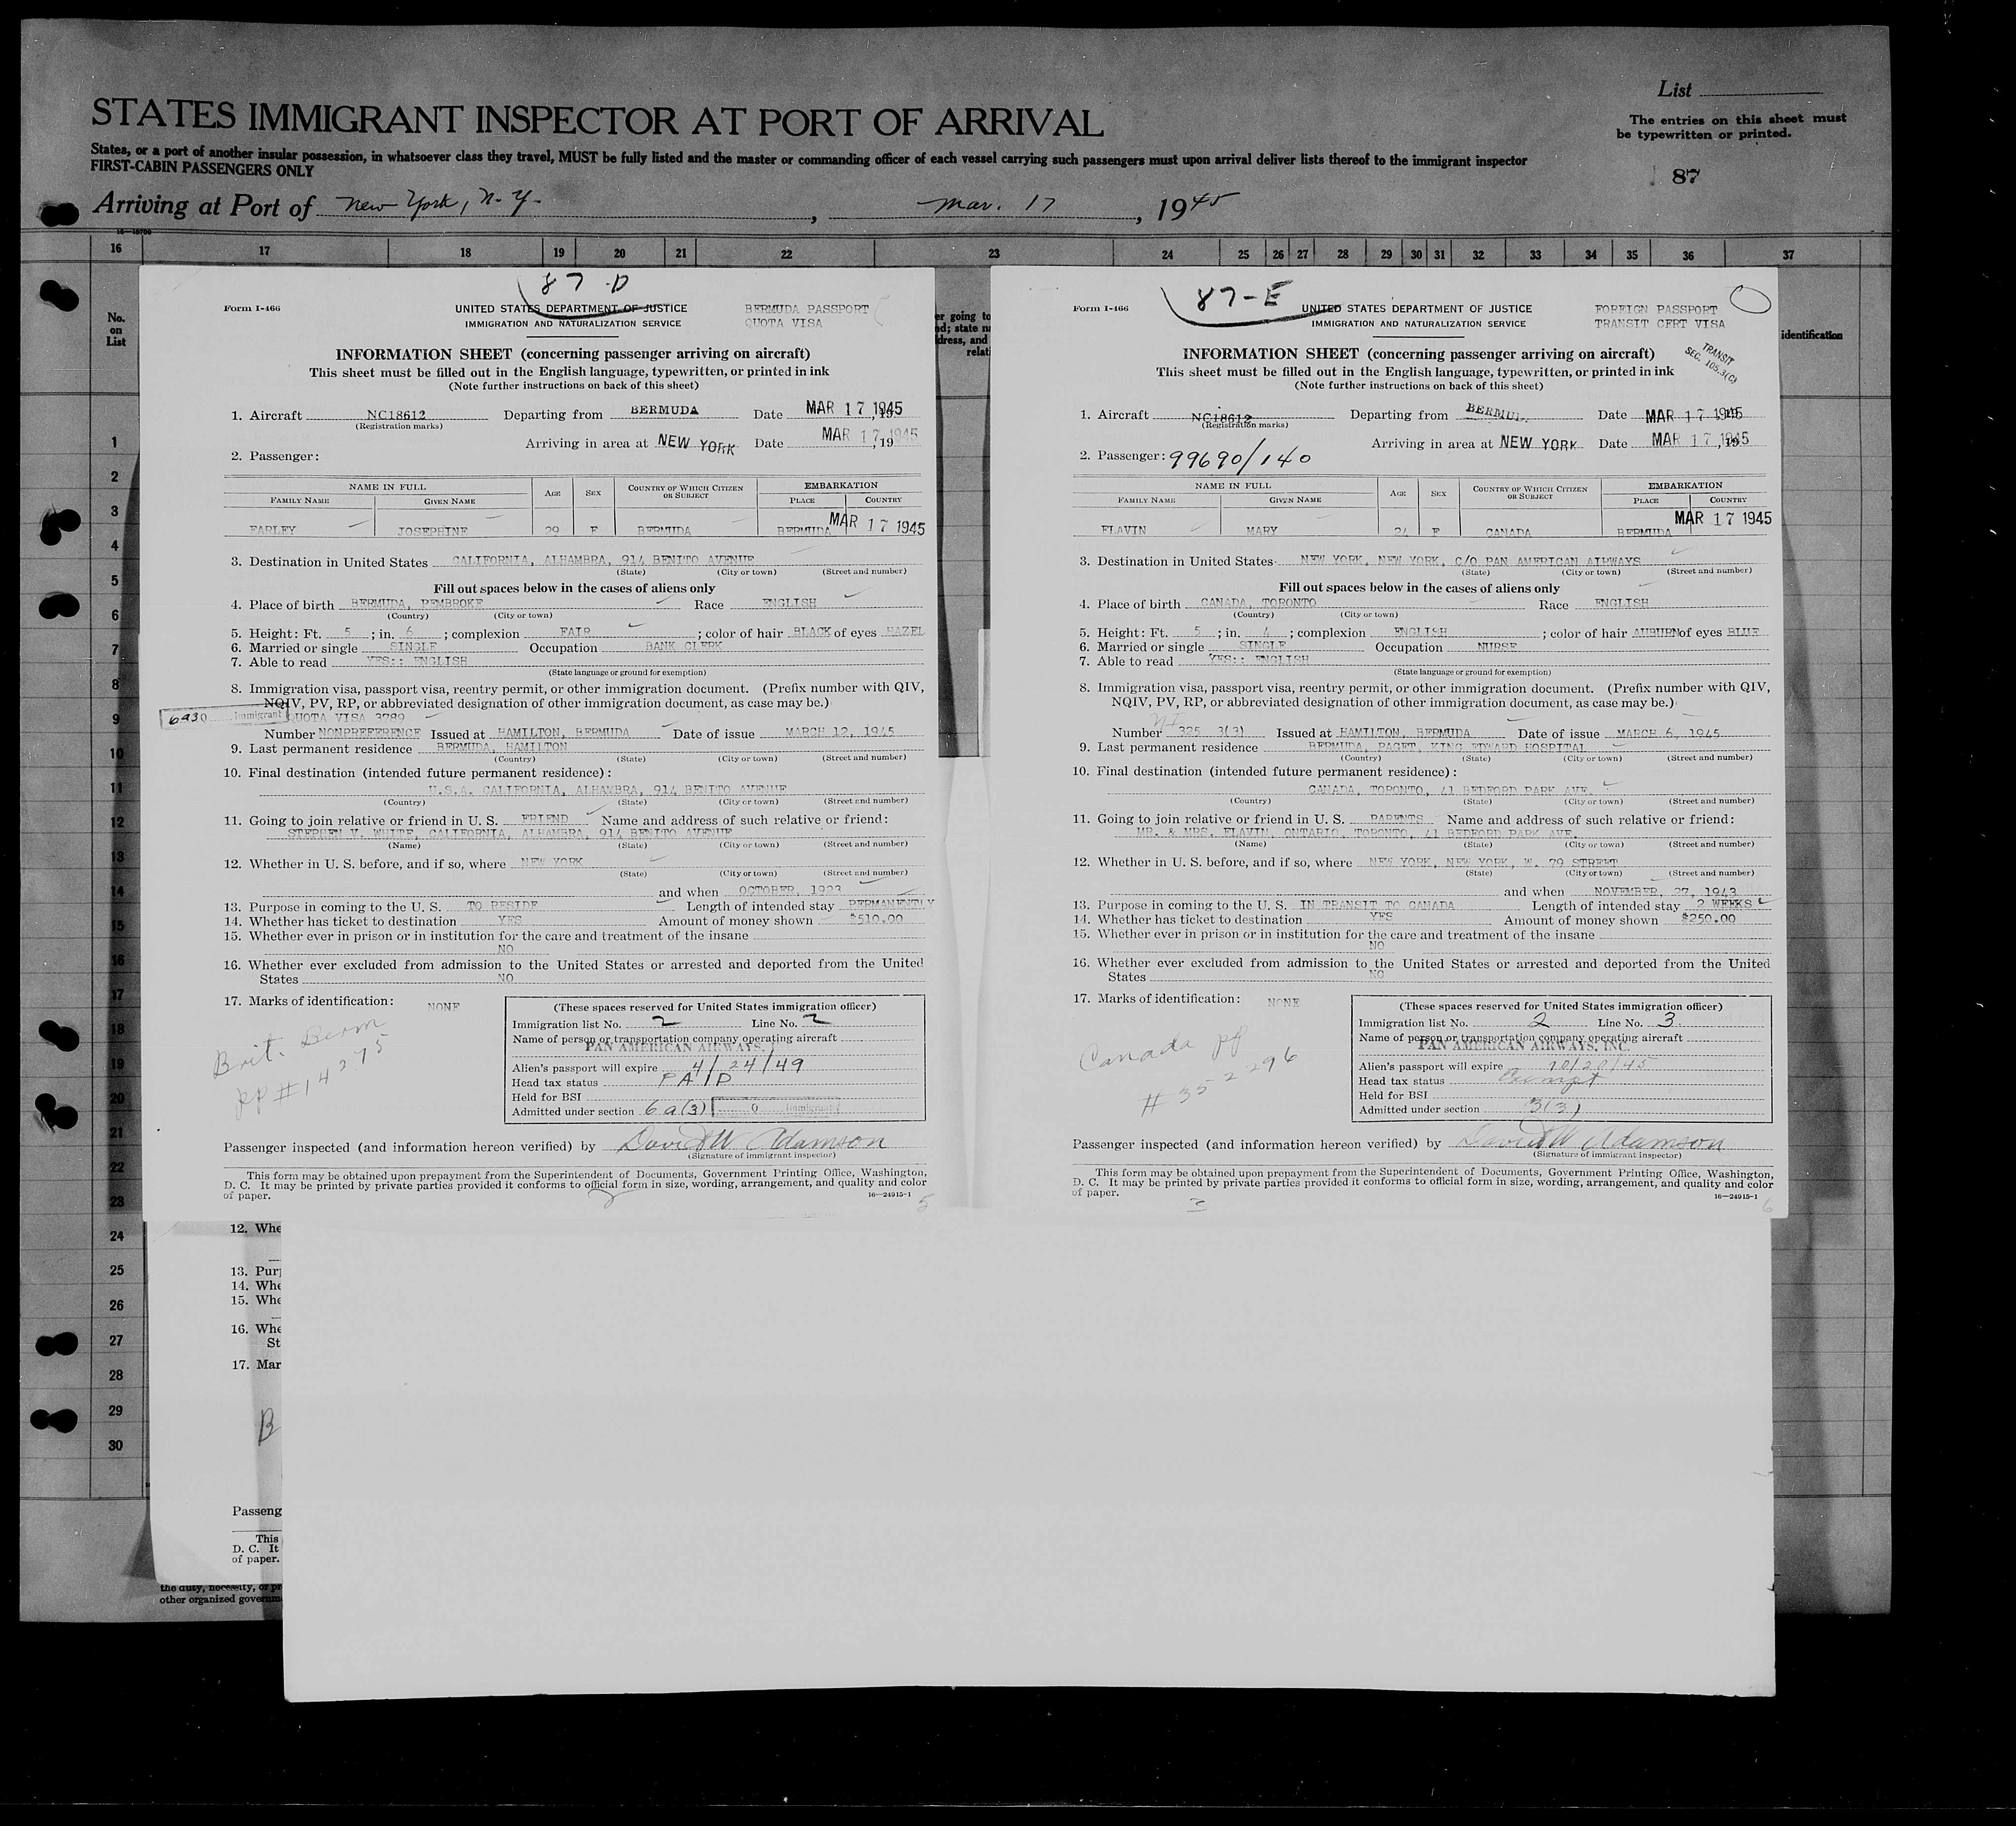 List
STATES IMMIGRANT INSPECTOR AT PORT OF ARRIVAL
The entries on this sheet must
be typewritten or printed.
States, or a port of another insular possession, in whatsoever class they travel, MUST be fully listed and the master or commanding officer of each vessel carrying such passengers must upon arrival deliver lists thereof to the immigrant inspector
FIRST-CABIN PASSENGERS ONLY
87
Arriving at Port of New York, N. Y. , Mar. 17 , 1945
16 17 18 19 20 21 22 23 24 25 26 27 28 29 30 31 32 33 34 35 36 37
No.
on
List
1
2
3
4
5
6
7
8
9
10
11
12
13
14
15
16
17
18
19
20
21
22
23
24
25
26
27
28
29
30
87-D
Form I-466 UNITED STATES DEPARTMENT OF JUSTICE BERMUDA PASSPORT
IMMIGRATION AND NATURALIZATION SERVICE QUOTA VISA
INFORMATION SHEET (concerning passenger arriving on aircraft)
This sheet must be filled out in the English language, typewritten, or printed in ink
(Note further instructions on back of this sheet)
1. Aircraft NC18612 Departing from BERMUDA Date MAR 17 1945, 19
(Registration marks)
Arriving in area at NEW YORK Date MAR 17 1945, 19
2. Passenger:
NAME IN FULL AGE SEX COUNTRY OF WHICH CITIZEN OR SUBJECT EMBARKATION
FAMILY NAME GIVEN NAME PLACE COUNTRY
FARLEY JOSEPHINE 29 F BERMUDA BERMUDA MAR 17 1945
3. Destination in United States CALIFORNIA, ALHAMBRA, 914 BENITO AVENUE
(State) (City or town) (Street and number)
Fill out spaces below in the cases of aliens only
4. Place of birth BERMUDA, PEMBROKE Race ENGLISH
(Country) (City or town)
5. Height: Ft. 5 ; in. 6 ; complexion FAIR ; color of hair BLACK of eyes HAZEL
6. Married or single SINGLE Occupation BANK CLERK
7. Able to read YES:: ENGLISH
(State language or ground for exemption)
8. Immigration visa, passport visa, reentry permit, or other immigration document. (Prefix number with QIV,
NQIV, PV, RP, or abbreviated designation of other immigration document, as case may be.)
Immigrant QUOTA VISA 3789
Number NONPREFERENCE Issued at HAMILTON, BERMUDA Date of issue MARCH 12, 1945
9. Last permanent residence BERMUDA, HAMILTON
(Country) (State) (City or town) (Street and number)
10. Final destination (intended future permanent residence):
U.S.A. CALIFORNIA, ALHAMBRA, 914 BENITO AVENUE
(Country) (State) (City or town) (Street and number)
11. Going to join relative or friend in U. S. FRIEND Name and address of such relative or friend:
STEPHEN V. WHITE, CALIFORNIA, ALHAMBRA, 914 BENITO AVENUE
(Name) (State) (City or town) (Street and number)
12. Whether in U. S. before, and if so, where NEW YORK
(State) (City or town) (Street and number)
and when OCTOBER, 1923
13. Purpose in coming to the U. S. TO RESIDE Length of intended stay PERMANENTLY
14. Whether has ticket to destination YES Amount of money shown $510.00
15. Whether ever in prison or in institution for the care and treatment of the insane
NO
16. Whether ever excluded from admission to the United States or arrested and deported from the United
States NO
17. Marks of identification: NONE
Brit. Berm
pp # 14275
(These spaces reserved for United States immigration officer)
Immigration list No. 2 Line No. 2
Name of person or transportation company operating aircraft
PAN AMERICAN AIRWAYS,
Alien's passport will expire 4/24/49
Head tax status PAID
Held for BSI
Admitted under section 6a(3) Immigrant
Passenger inspected (and information hereon verified) by David W Adamson
(Signature of immigrant inspector)
This form may be obtained upon prepayment from the Superintendent of Documents, Government Printing Office, Washington,
D. C. It may be printed by private parties provided it conforms to official form in size, wording, arrangement, and quality and color
of paper. 16—24915-1
2 5
87-E
Form I-466 UNITED STATES DEPARTMENT OF JUSTICE FOREIGN PASSPORT
IMMIGRATION AND NATURALIZATION SERVICE TRANSIT CERT VISA
TRANSIT
SEC. 105.3(C)
INFORMATION SHEET (concerning passenger arriving on aircraft)
This sheet must be filled out in the English language, typewritten, or printed in ink
(Note further instructions on back of this sheet)
1. Aircraft NC18612 Departing from Date MAR 17 1945
(Registration marks)
Arriving in area at NEW YORK Date MAR 17 1945
2. Passenger: 99690/140
NAME IN FULL AGE SEX COUNTRY OF WHICH CITIZEN OR SUBJECT EMBARKATION
FAMILY NAME GIVEN NAME PLACE COUNTRY
FLAVIN MARY 24 F CANADA BERMUDA MAR 17 1945
3. Destination in United States NEW YORK, NEW YORK, C/O PAN AMERICAN AIRWAYS
(State) (City or town) (Street and number)
Fill out spaces below in the cases of aliens only
4. Place of birth CANADA, TORONTO Race ENGLISH
(Country) (City or town)
5. Height: Ft. 5 ; in. 4 ; complexion ENGLISH ; color of hair AUBURN of eyes BLUE
6. Married or single SINGLE Occupation NURSE
7. Able to read YES:: ENGLISH
(State language or ground for exemption)
8. Immigration visa, passport visa, reentry permit, or other immigration document. (Prefix number with QIV,
NQIV, PV, RP, or abbreviated designation of other immigration document, as case may be.)
Number 325 3(3) Issued at HAMILTON, BERMUDA Date of issue MARCH 6, 1945
9. Last permanent residence BERMUDA, PAGET, KING EDWARD HOSPITAL
(Country) (State) (City or town) (Street and number)
10. Final destination (intended future permanent residence):
CANADA, TORONTO, 41 BEDFORD PARK AVE.
(Country) (State) (City or town) (Street and number)
11. Going to join relative or friend in U. S. PARENTS Name and address of such relative or friend:
MR. & MRS. FLAVIN, ONTARIO, TORONTO, 41 BEDFORD PARK AVE.
(Name) (State) (City or town) (Street and number)
12. Whether in U. S. before, and if so, where NEW YORK, NEW YORK, W. 79 STREET
(State) (City or town) (Street and number)
and when NOVEMBER, 27, 1943
13. Purpose in coming to the U. S. IN TRANSIT TO CANADA Length of intended stay 2 WEEKS
14. Whether has ticket to destination YES Amount of money shown $250.00
15. Whether ever in prison or in institution for the care and treatment of the insane
NO
16. Whether ever excluded from admission to the United States or arrested and deported from the United
States NO
17. Marks of identification: NONE
Canada pp
# 352296
(These spaces reserved for United States immigration officer)
Immigration list No. 2 Line No. 3
Name of person or transportation company operating aircraft
PAN AMERICAN AIRWAYS, INC.
Alien's passport will expire 10/20/45
Head tax status Exempt
Held for BSI
Admitted under section 3(3)
Passenger inspected (and information hereon verified) by David W Adamson
(Signature of immigrant inspector)
This form may be obtained upon prepayment from the Superintendent of Documents, Government Printing Office, Washington,
D. C. It may be printed by private parties provided it conforms to official form in size, wording, arrangement, and quality and color
of paper. 16—24915-1
3 6
er going to
dress, and
relati
identification
12. Whe
13. Pur
14. Whe
15. Whe
16. Whe
St
17. Mar
B
Passeng
This
D. C. It
of paper.
the duty, necessity, or pr
other organized governm